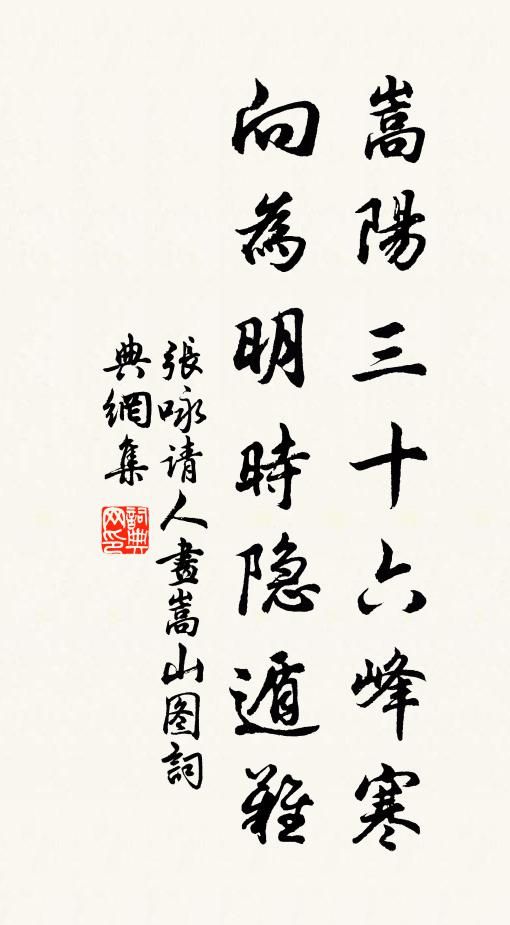 嵩陽三十六峰寒
向為明時隐遁難
張咏请人畫嵩山图詞
典網集
詞典网印